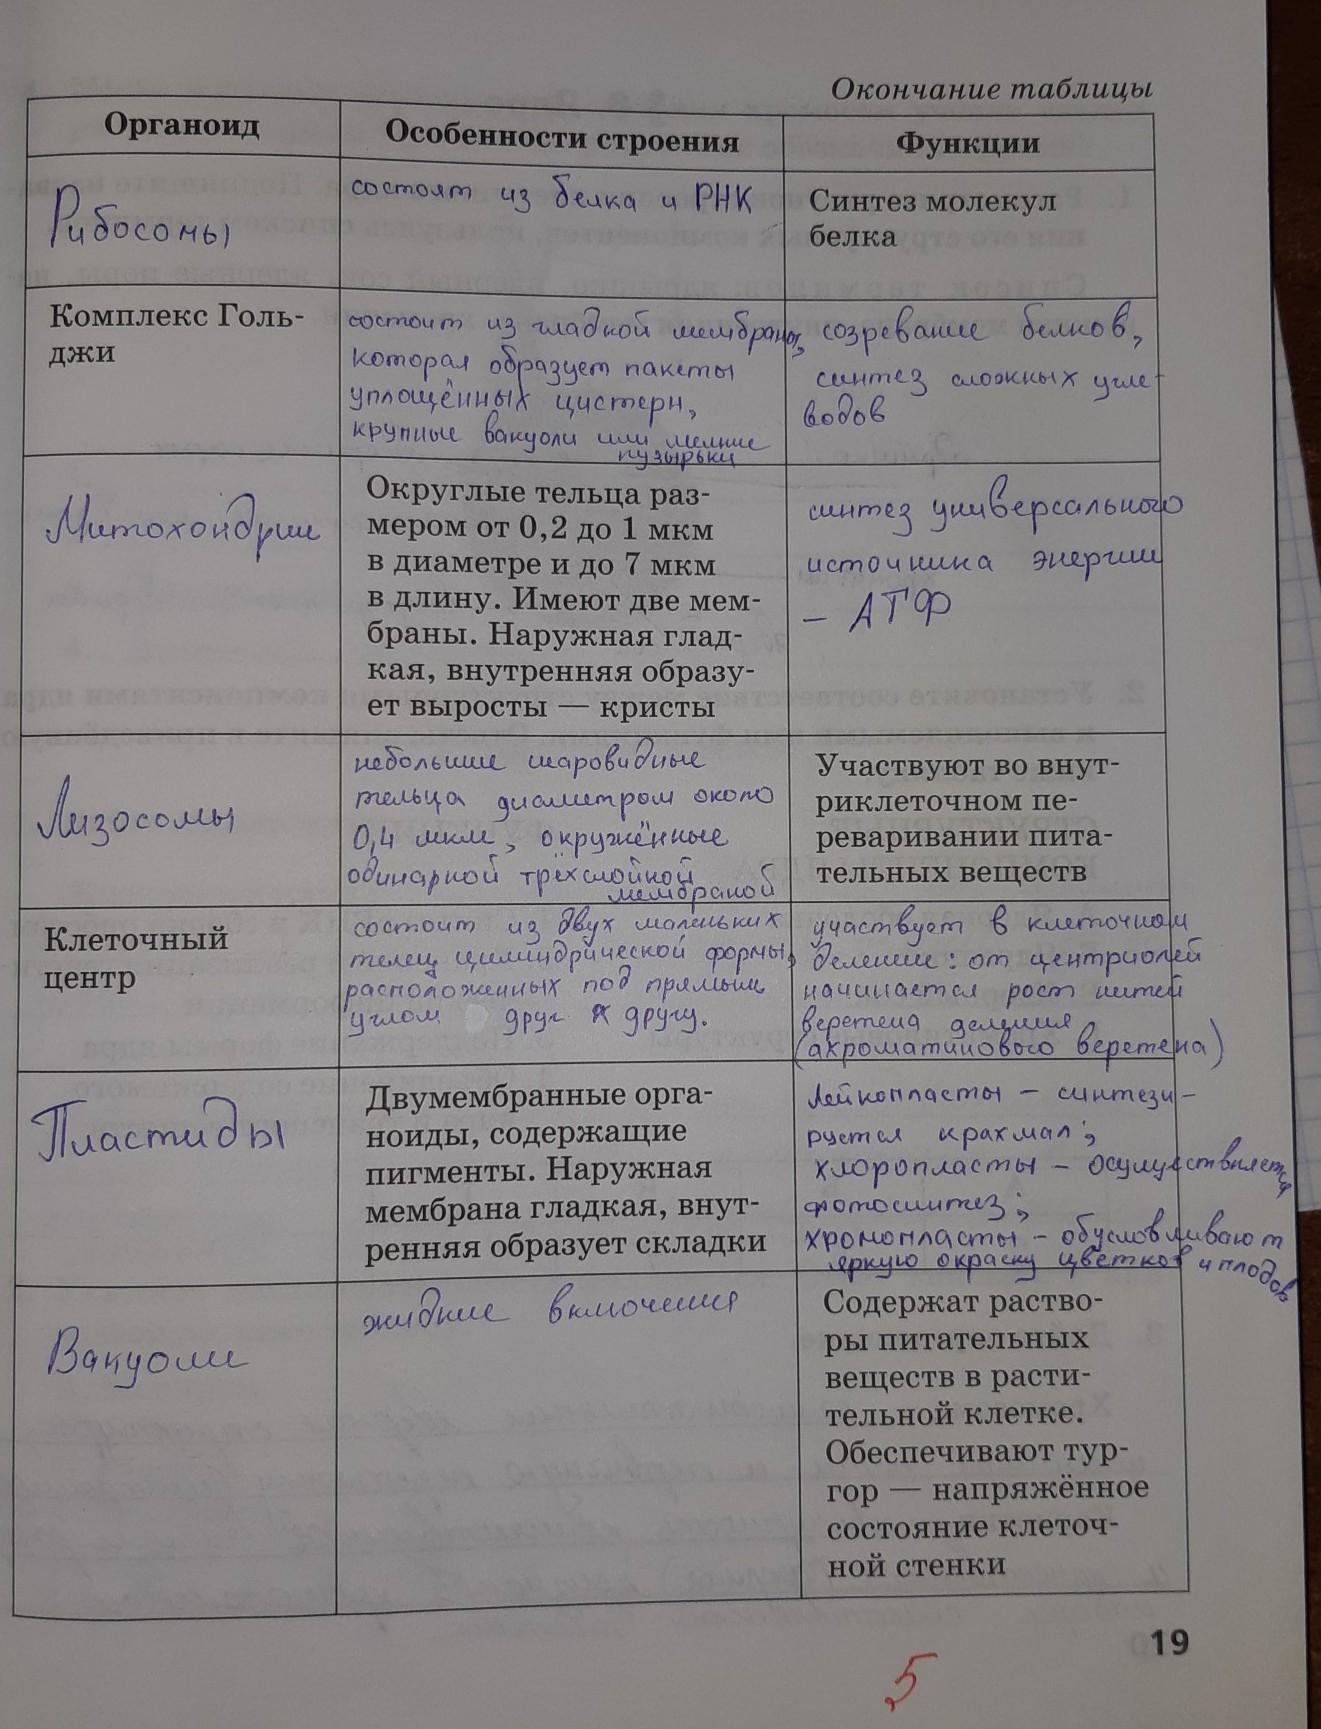 Окончание таблицы
Органоид
Особенности строения
Функции
Рибосомы
состоят из белка и РНК
Синтез молекул
белка
Комплекс Голь-
джи
состоит из гладкой мембраны,
которая образует пакеты
уплощённых цистерн,
крупные вакуоли или мелкие
пузырьки
созревание белков,
синтез сложных угле-
водов
Митохондрии
Округлые тельца раз-
мером от 0,2 до 1 мкм
в диаметре и до 7 мкм
в длину. Имеют две мем-
браны. Наружная глад-
кая, внутренняя образу-
ет выросты — кристы
синтез универсального
источника энергии
– АТФ
Лизосомы
небольшие шаровидные
тельца диаметром около
0,4 мкм, окружённые
одинарной трёхслойной
мембраной
Участвуют во внут-
риклеточном пе-
реваривании пита-
тельных веществ
Клеточный
центр
состоит из двух маленьких
телец цилиндрической формы,
расположенных под прямым
углом друг к другу.
участвует в клеточном
делении: от центриолей
начинается рост нитей
веретена деления
(ахроматинового веретена)
Пластиды
Двумембранные орга-
ноиды, содержащие
пигменты. Наружная
мембрана гладкая, внут-
ренняя образует складки
Лейкопласты – синтези-
руется крахмал;
хлоропласты – осуществляется
фотосинтез;
хромопласты – обусловливают
яркую окраску цветков и плодов
Вакуоли
жидкие включения
Содержат раство-
ры питательных
веществ в расти-
тельной клетке.
Обеспечивают тур-
гор — напряжённое
состояние клеточ-
ной стенки
19
5